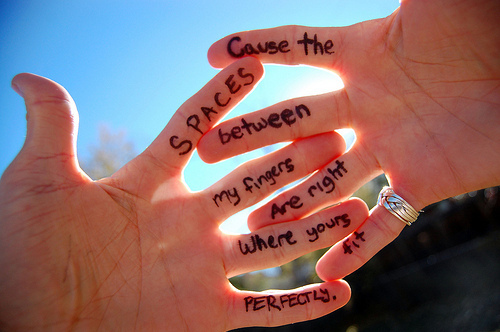 Cause the
SPACES
between
my fingers
Are right
Where yours
fit
PERFECTLY.